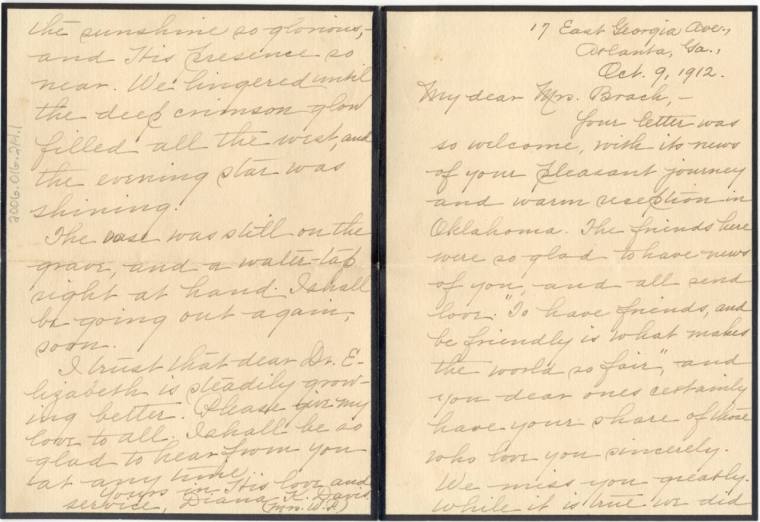 17 East Georgia Ave.,
Atlanta, Ga.,
Oct. 9, 1912.
My dear Mrs. Brach,-
Your letter was
so welcome, with its news
of your pleasant journey
and warm reception in
Oklahoma. The friends here
were so glad to have news
of you, and all send
love. "To have friends, and
be friendly is what makes
the world so fair", and
you dear ones certainly
have your share of those
who love you sincerely.
We miss you greatly.
While it is true we did
the sunshine so glorious,-
and His presence so
near. We lingered until
the deep crimson glow
filled all the west, and
the evening star was
shining.
The vase was still on the
grave, and a water-tap
right at hand. I shall
be going out again,
soon.
I trust that dear Dr. E-
lizabeth is steadily grow-
ing better. Please give my
love to all. I shall be so
glad to hear from you
at any time.
Yours in His love and
service, Diana K. Davis
(Mrs. W. R.)
2006.016.24.1